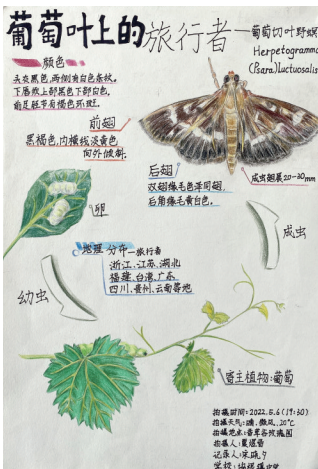 葡萄叶上的旅行者—葡萄切叶野螟
Herpetogramma
(Psara)luctuosalis
颜色
头灰黑色,两侧有白色条纹。
下唇须上部黑色下部白色,
前足胫节有褐色环斑。
前翅
黑褐色,内横线淡黄色
向外倾斜.
后翅
双翅缘毛色泽同翅,
后角缘毛黄白色。
成虫翅展20-30mm
卵
成虫
地理分布—旅行者
浙江、江苏、湖北
福建、台湾、广东、
四川、贵州、云南等地
幼虫
寄主植物:葡萄
拍摄时间:2022.5.6(19:30)
拍摄天气:晴、微风、20℃
拍摄地点:香草谷玫瑰园
拍摄人:
记录人:
学校: